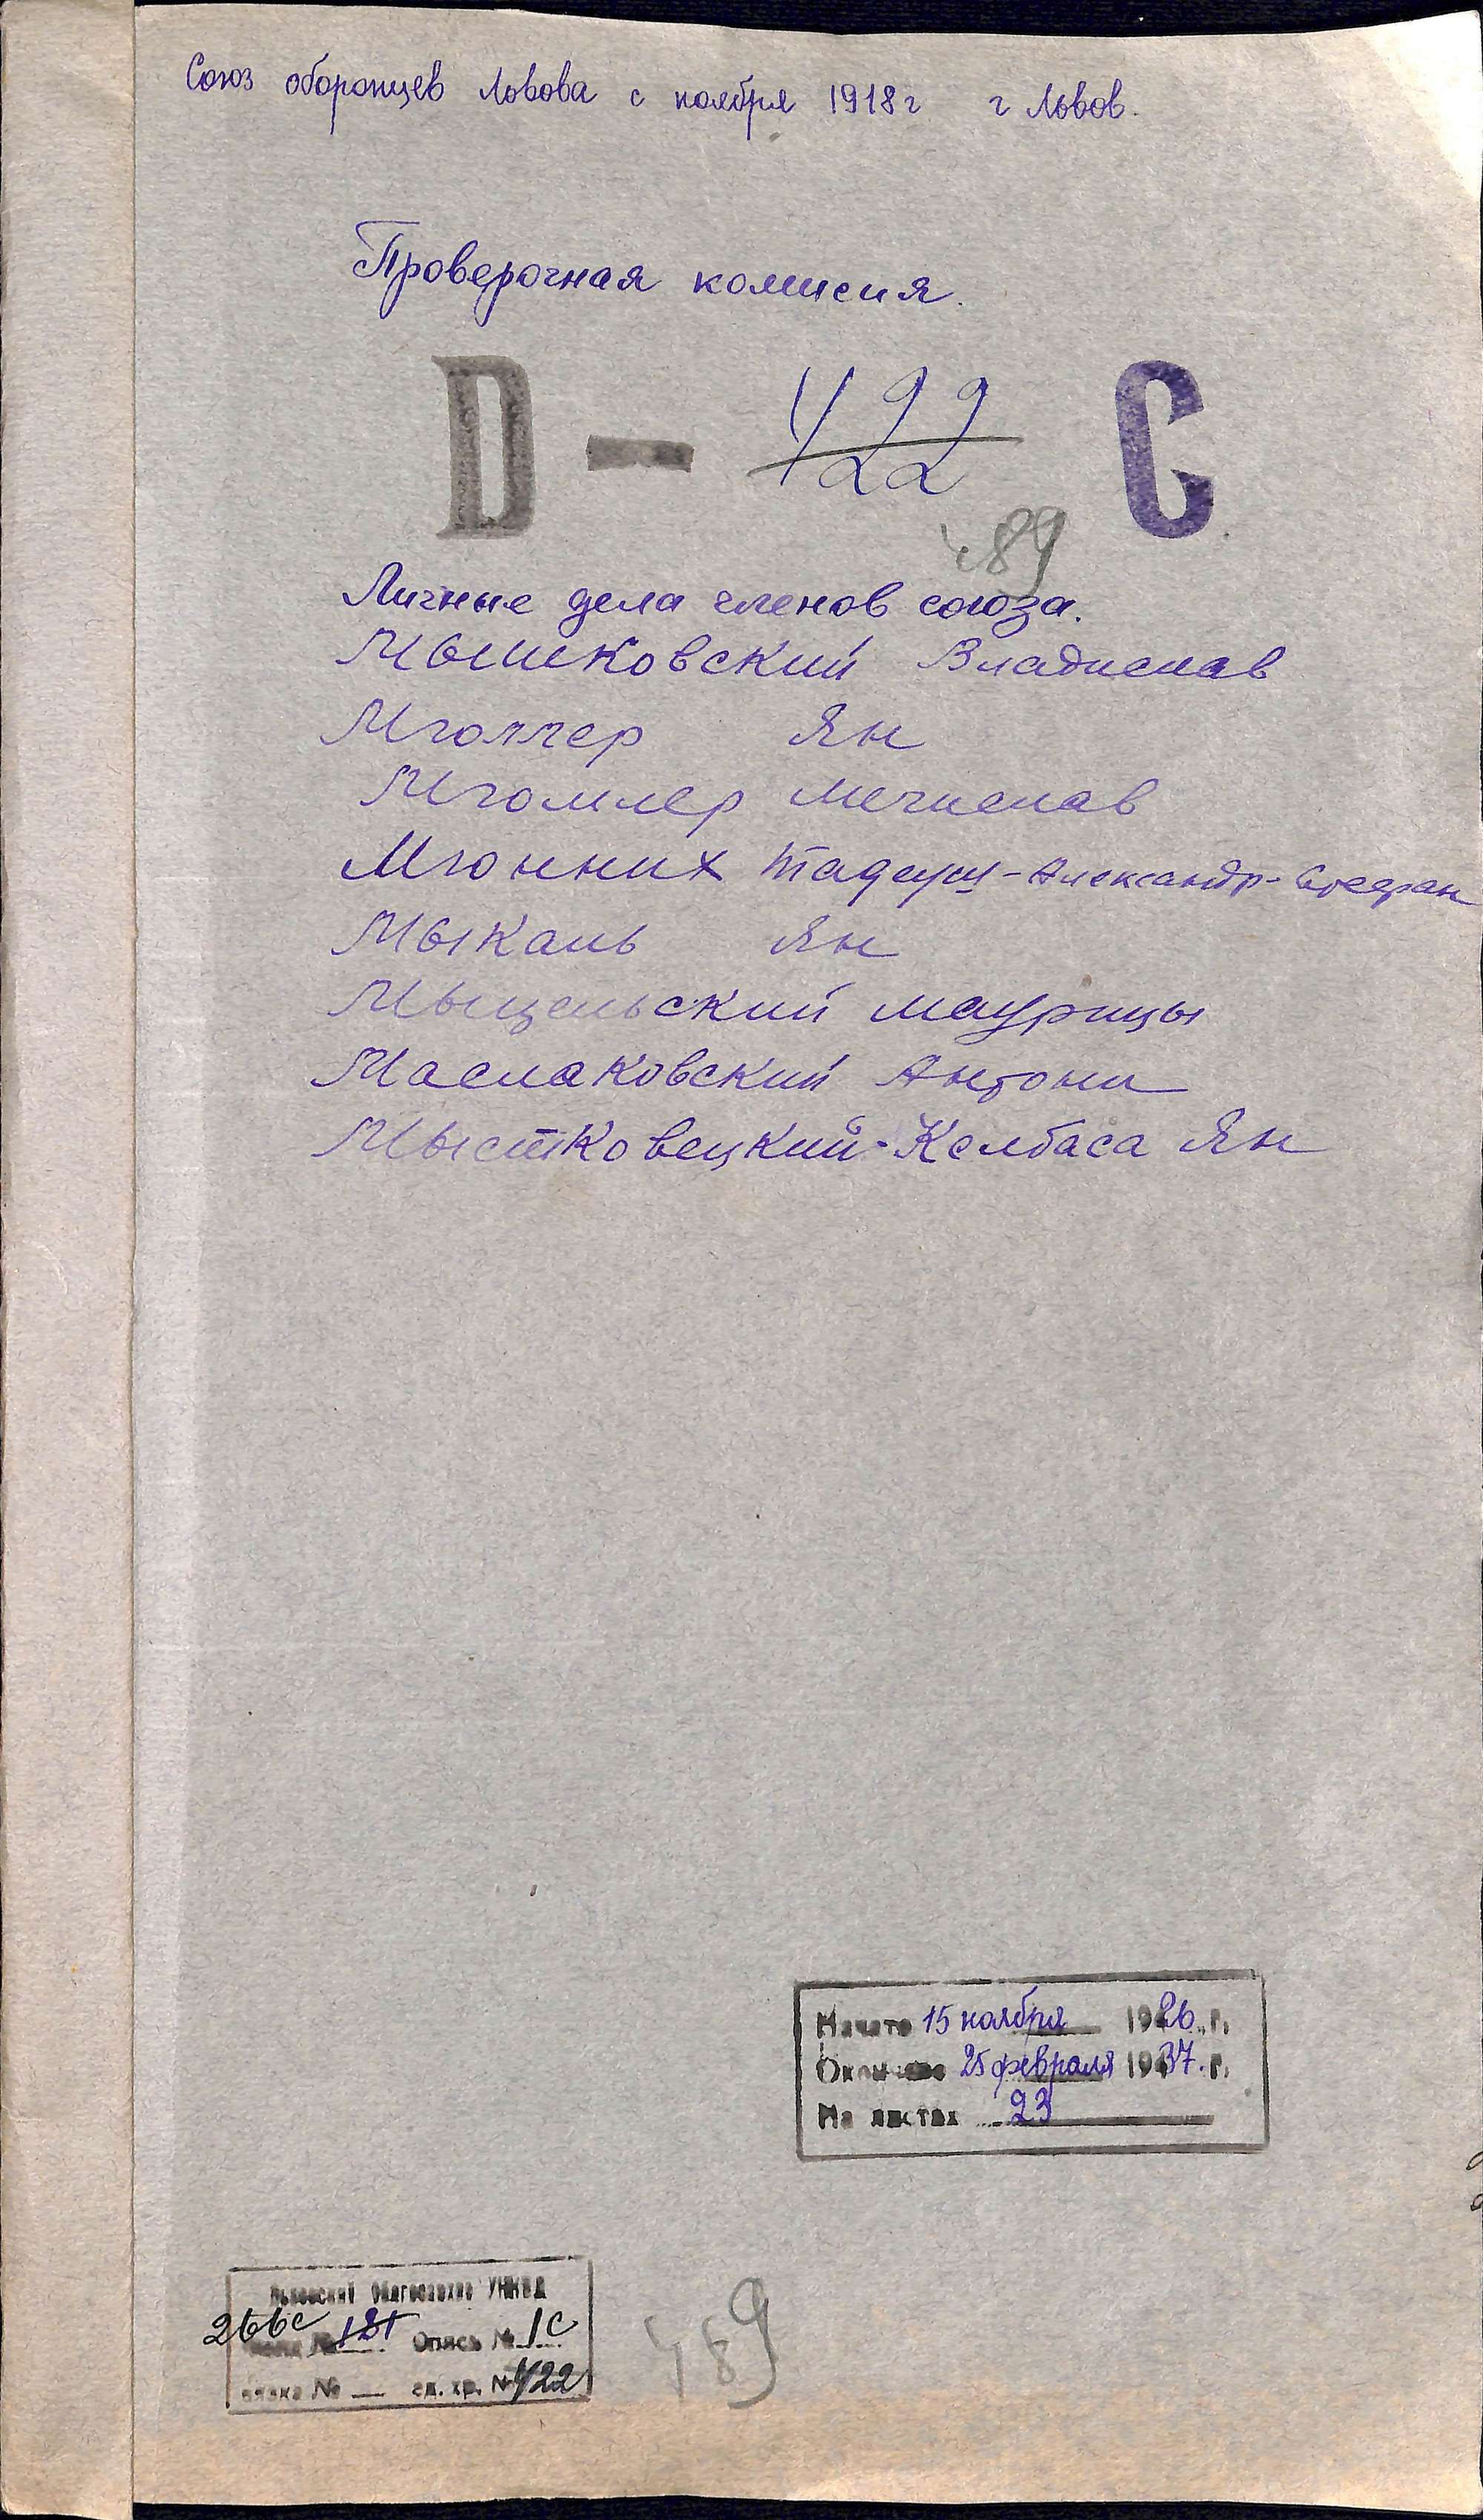 Союз оборонцев Львова с ноября 1918 г г Львов.
Проверочная комисия.
D — 422 С
489
Личные дела членов союза.
Мышковский Владислав
Мюллер Ян
Мюллер Мечислав
Мюнних Тадеуш-Александр-Стефан
Мыкань Ян
Мыцельский Маурицы
Маслаковский Антони
Мыстковецкий-Келбаса Ян
Начато 15 ноября 1926 г.
Окончено 25 февраля 1937 г.
На листах 23
Львовский Облгосархив УНКВД
266с 121 Опись № 1с
вязка № — ед. хр. № 422
489